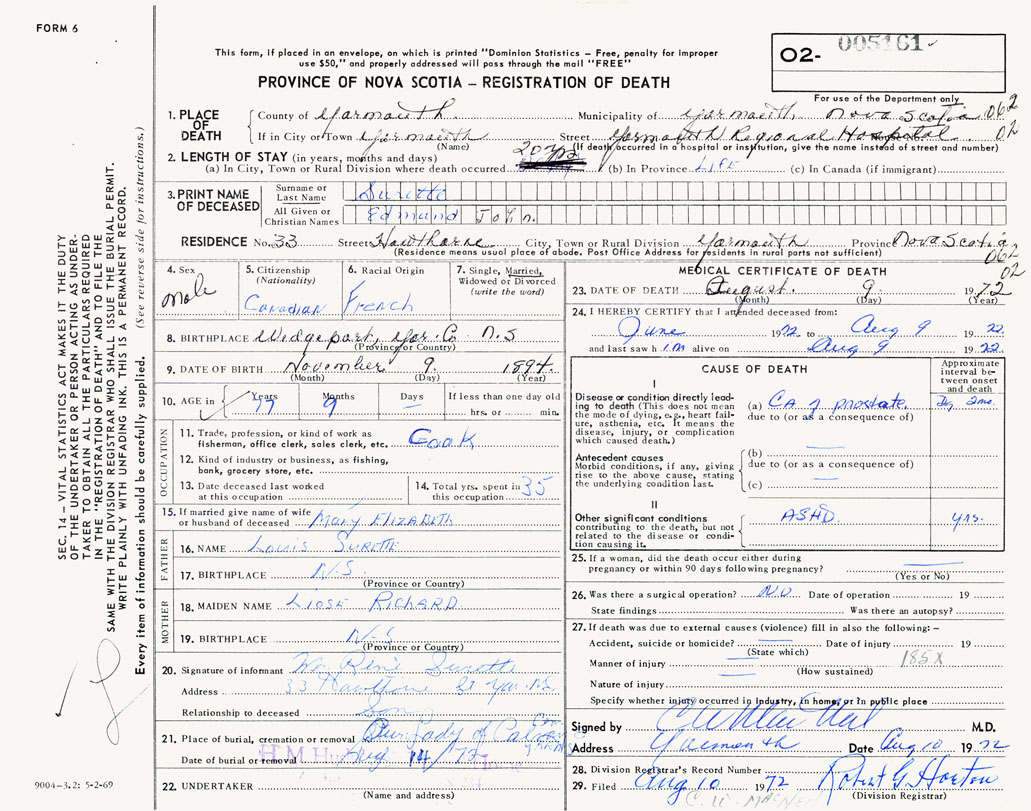 FORM 6
This form, if placed in an envelope, on which is printed "Dominion Statistics – Free, penalty for improper
use $50," and properly addressed will pass through the mail "FREE"
PROVINCE OF NOVA SCOTIA – REGISTRATION OF DEATH
O2- 005161
For use of the Department only
1. PLACE OF DEATH
County of Yarmouth Municipality of Yarmouth, Nova Scotia 062
If in City or Town Yarmouth Street Yarmouth Regional Hospital 02
(Name) (If death occurred in a hospital or institution, give the name instead of street and number)
2. LENGTH OF STAY (in years, months and days)
(a) In City, Town or Rural Division where death occurred 20 yrs (b) In Province LIFE (c) In Canada (if immigrant)
3. PRINT NAME OF DECEASED
Surname or Last Name Surette
All Given or Christian Names Edmund John.
RESIDENCE No. 33 Street Hawthorne City, Town or Rural Division Yarmouth Province Nova Scotia
(Residence means usual place of abode. Post Office Address for residents in rural parts not sufficient)
062
02
4. Sex
Male
5. Citizenship
(Nationality)
Canadian
6. Racial Origin
French
7. Single, Married,
Widowed or Divorced
(write the word)
8. BIRTHPLACE Wedgeport, Yar. Co. N.S
(Province or Country)
9. DATE OF BIRTH November 9. 1894.
(Month) (Day) (Year)
10. AGE in Years 77 Months 9 Days — If less than one day old
hrs. or min.
OCCUPATION
11. Trade, profession, or kind of work as
fisherman, office clerk, sales clerk, etc. Cook
12. Kind of industry or business, as fishing,
bank, grocery store, etc.
13. Date deceased last worked
at this occupation
14. Total yrs. spent in
this occupation 35
15. If married give name of wife
or husband of deceased Mary Elizabeth
FATHER
16. NAME Louis Surette
17. BIRTHPLACE N.S.
(Province or Country)
MOTHER
18. MAIDEN NAME Liose Richard
19. BIRTHPLACE N-S
(Province or Country)
20. Signature of informant Wm René Surette
Address 33 Hawthorne St Yar. NS
Relationship to deceased Son
21. Place of burial, cremation or removal Our Lady of Calvary
Date of burial or removal Aug /72
22. UNDERTAKER
(Name and address)
MEDICAL CERTIFICATE OF DEATH
23. DATE OF DEATH August. 9. 1972
(Month) (Day) (Year)
24. I HEREBY CERTIFY that I attended deceased from:
June 1972 to Aug 9 1972.
and last saw h im alive on Aug 9 1972.
CAUSE OF DEATH
Approximate interval between onset and death
I
Disease or condition directly leading to death (This does not mean the mode of dying, e.g., heart failure, asthenia, etc. It means the disease, injury, or complication which caused death.)
(a) CA of prostate.
due to (or as a consequence of)
Antecedent causes
Morbid conditions, if any, giving rise to the above cause, stating the underlying condition last.
(b) —
due to (or as a consequence of)
(c) —
II
Other significant conditions
contributing to the death, but not related to the disease or condition causing it.
ASHD. yrs.
25. If a woman, did the death occur either during
pregnancy or within 90 days following pregnancy? —
(Yes or No)
26. Was there a surgical operation? NO Date of operation 19
State findings Was there an autopsy?
27. If death was due to external causes (violence) fill in also the following: –
Accident, suicide or homicide? — Date of injury 19
(State which)
Manner of injury — 185X
(How sustained)
Nature of injury
Specify whether injury occurred in Industry, in home, or in public place
Signed by M.D.
Address Yarmouth Date Aug 10 1972
28. Division Registrar's Record Number
29. Filed Aug 10 1972 Robert G. Horton
(Division Registrar)
SEC. 14 – VITAL STATISTICS ACT MAKES IT THE DUTY
OF THE UNDERTAKER OR PERSON ACTING AS UNDER-
TAKER TO OBTAIN ALL THE PARTICULARS REQUIRED
IN THE "REGISTRATION OF DEATH" AND TO FILE THE
SAME WITH THE DIVISION REGISTRAR WHO SHALL ISSUE THE BURIAL PERMIT.
WRITE PLAINLY WITH UNFADING INK. THIS IS A PERMANENT RECORD.
Every item of information should be carefully supplied. (See reverse side for instructions.)
9004–3.2: 5-2-69